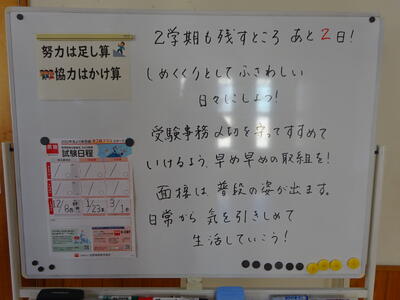 努力は足し算
協力はかけ算
試験日程
12/8
1/23
3/1
2学期も残すところ あと2日!
しめくくりとしてふさわしい
日々にしよう!
受験事務〆切を守ってすすめて
いけるよう、早め早めの取組を!
面接は普段の姿が出ます。
日常から 気を引きしめて
生活していこう!